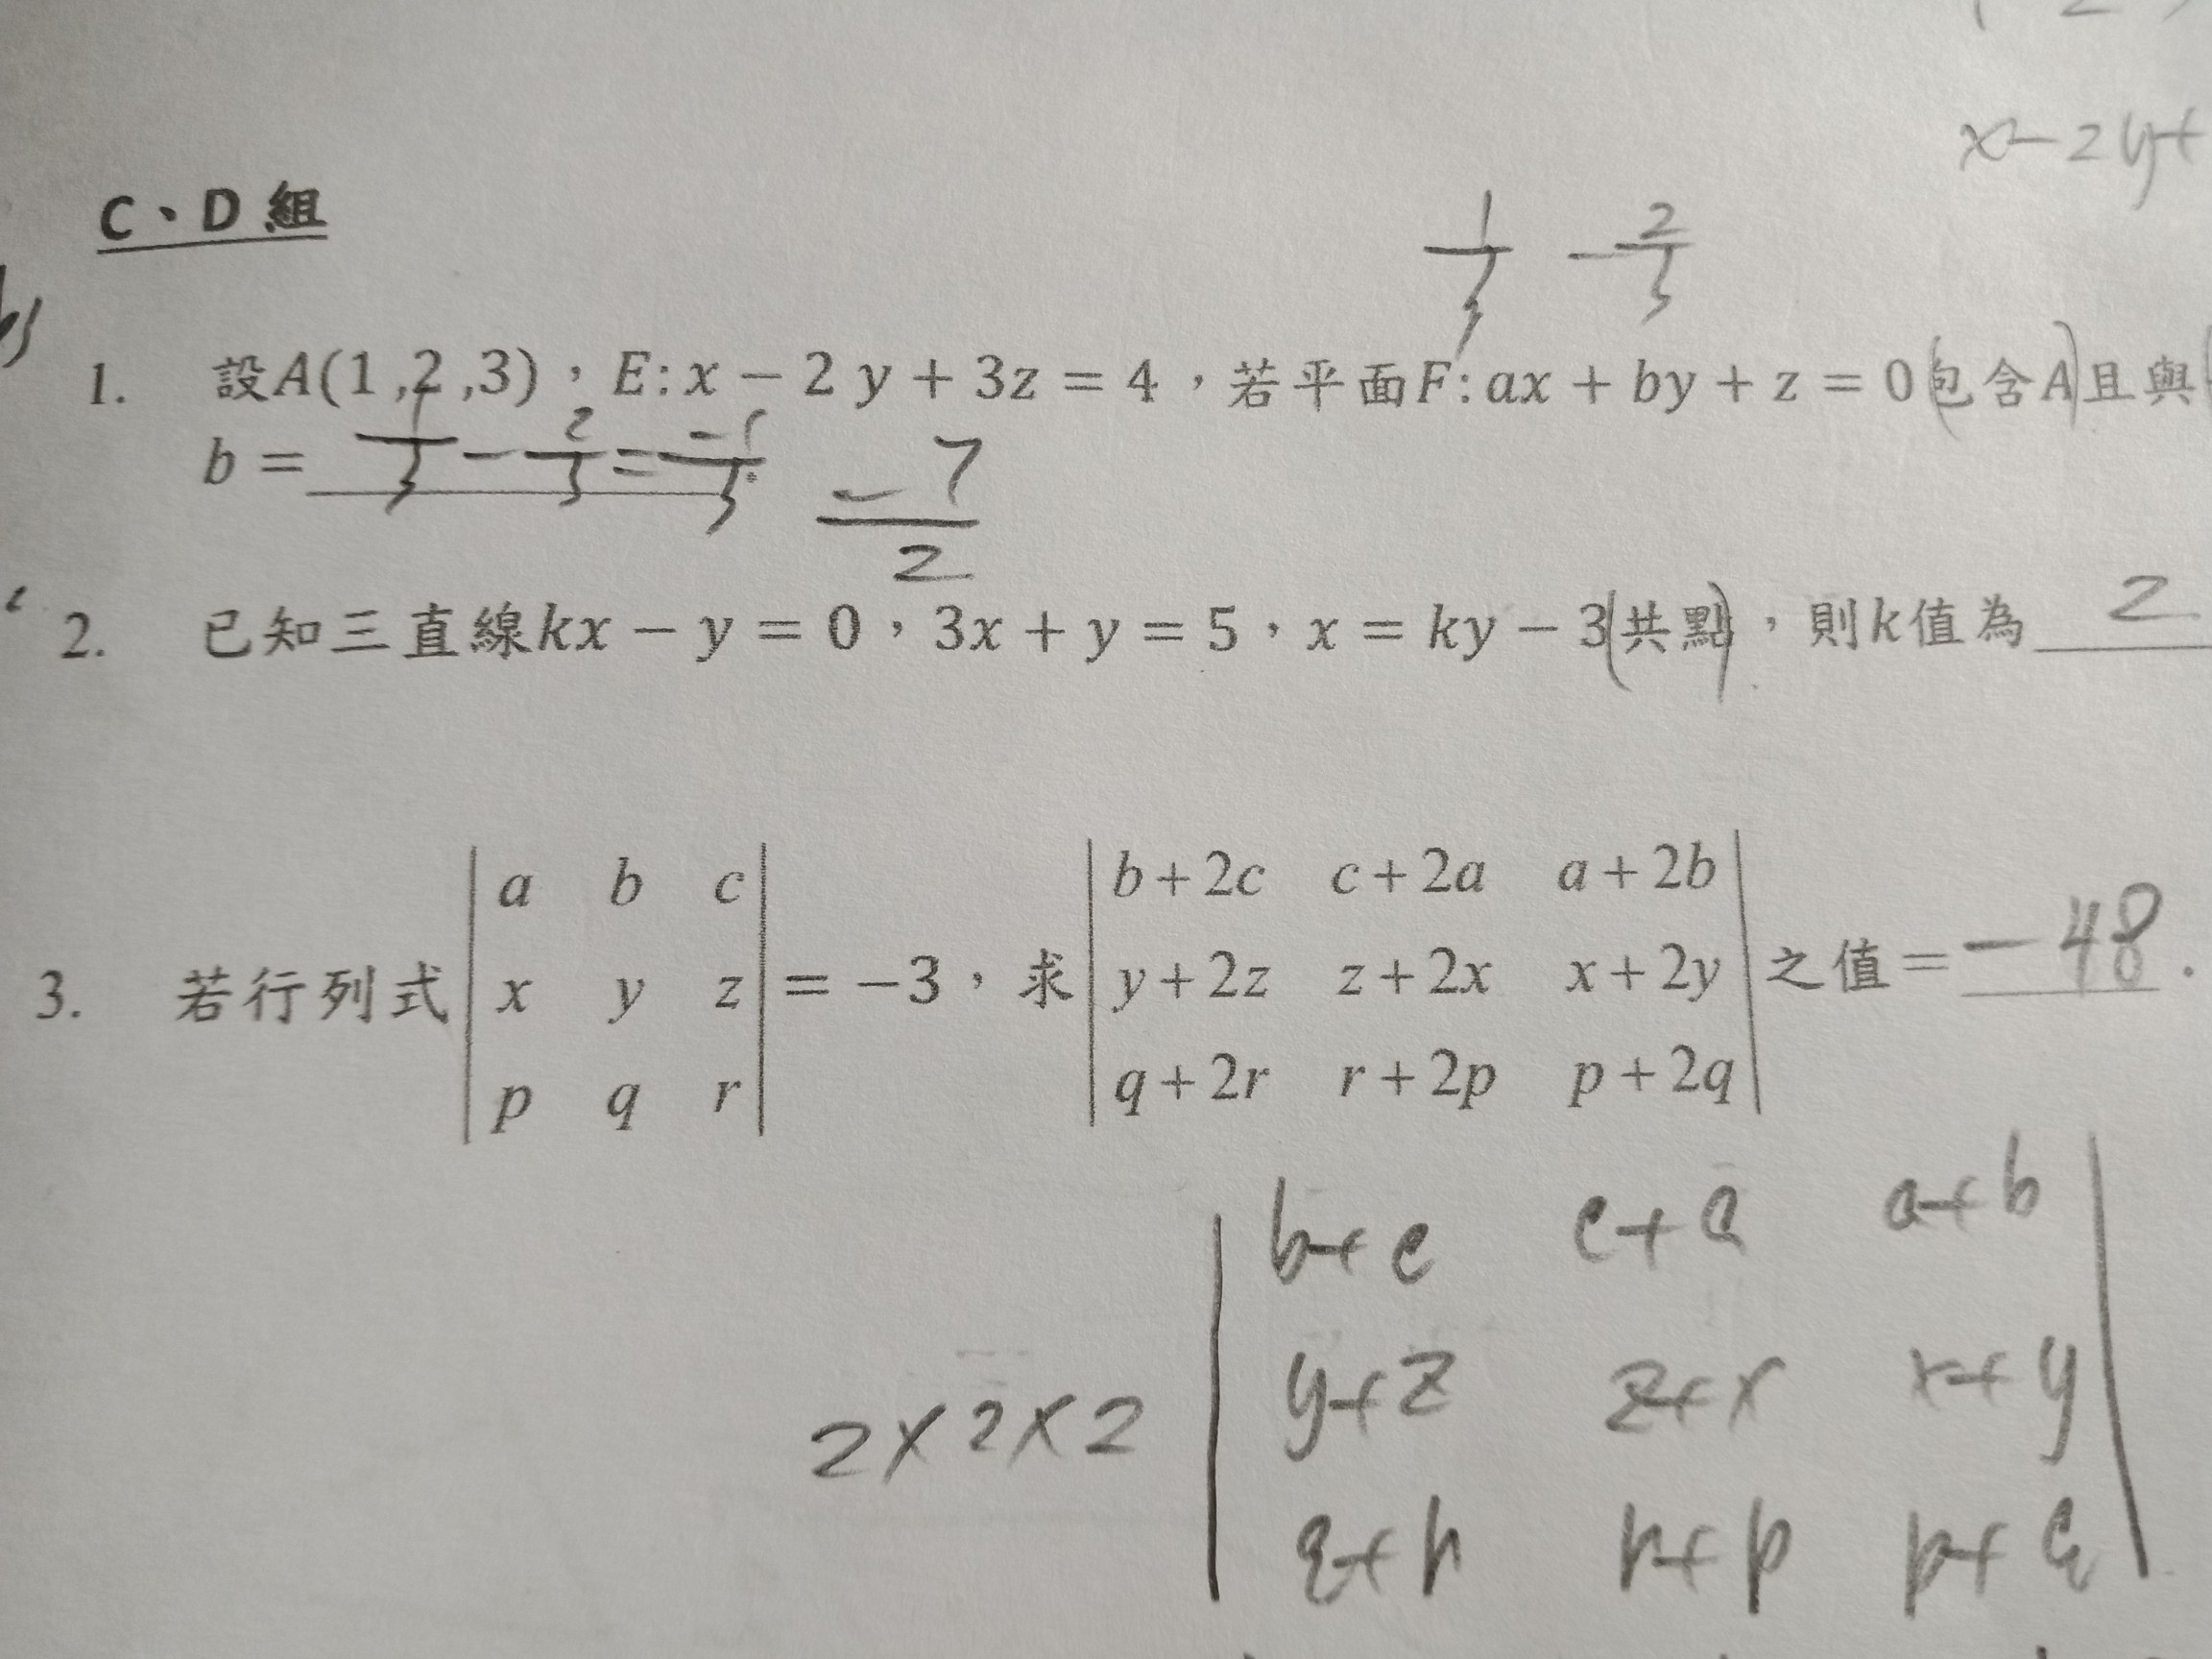 x-2y+
C、D 組
1/3 -2/3
1. 設A(1,2,3)，E:x-2y+3z=4，若平面F:ax+by+z=0(包含A)且與
b= 1/3-2/3=-1/3 -7/2
2. 已知三直線kx-y=0，3x+y=5，x=ky-3(共點)，則k值為 2
3. 若行列式 | a b c | = -3，求 | b+2c c+2a a+2b | 之值= -48.
| x y z | | y+2z z+2x x+2y |
| p q r | | q+2r r+2p p+2q |
b+c c+a a+b
2×2×2 | y+z z+x x+y |
q+r r+p p+q